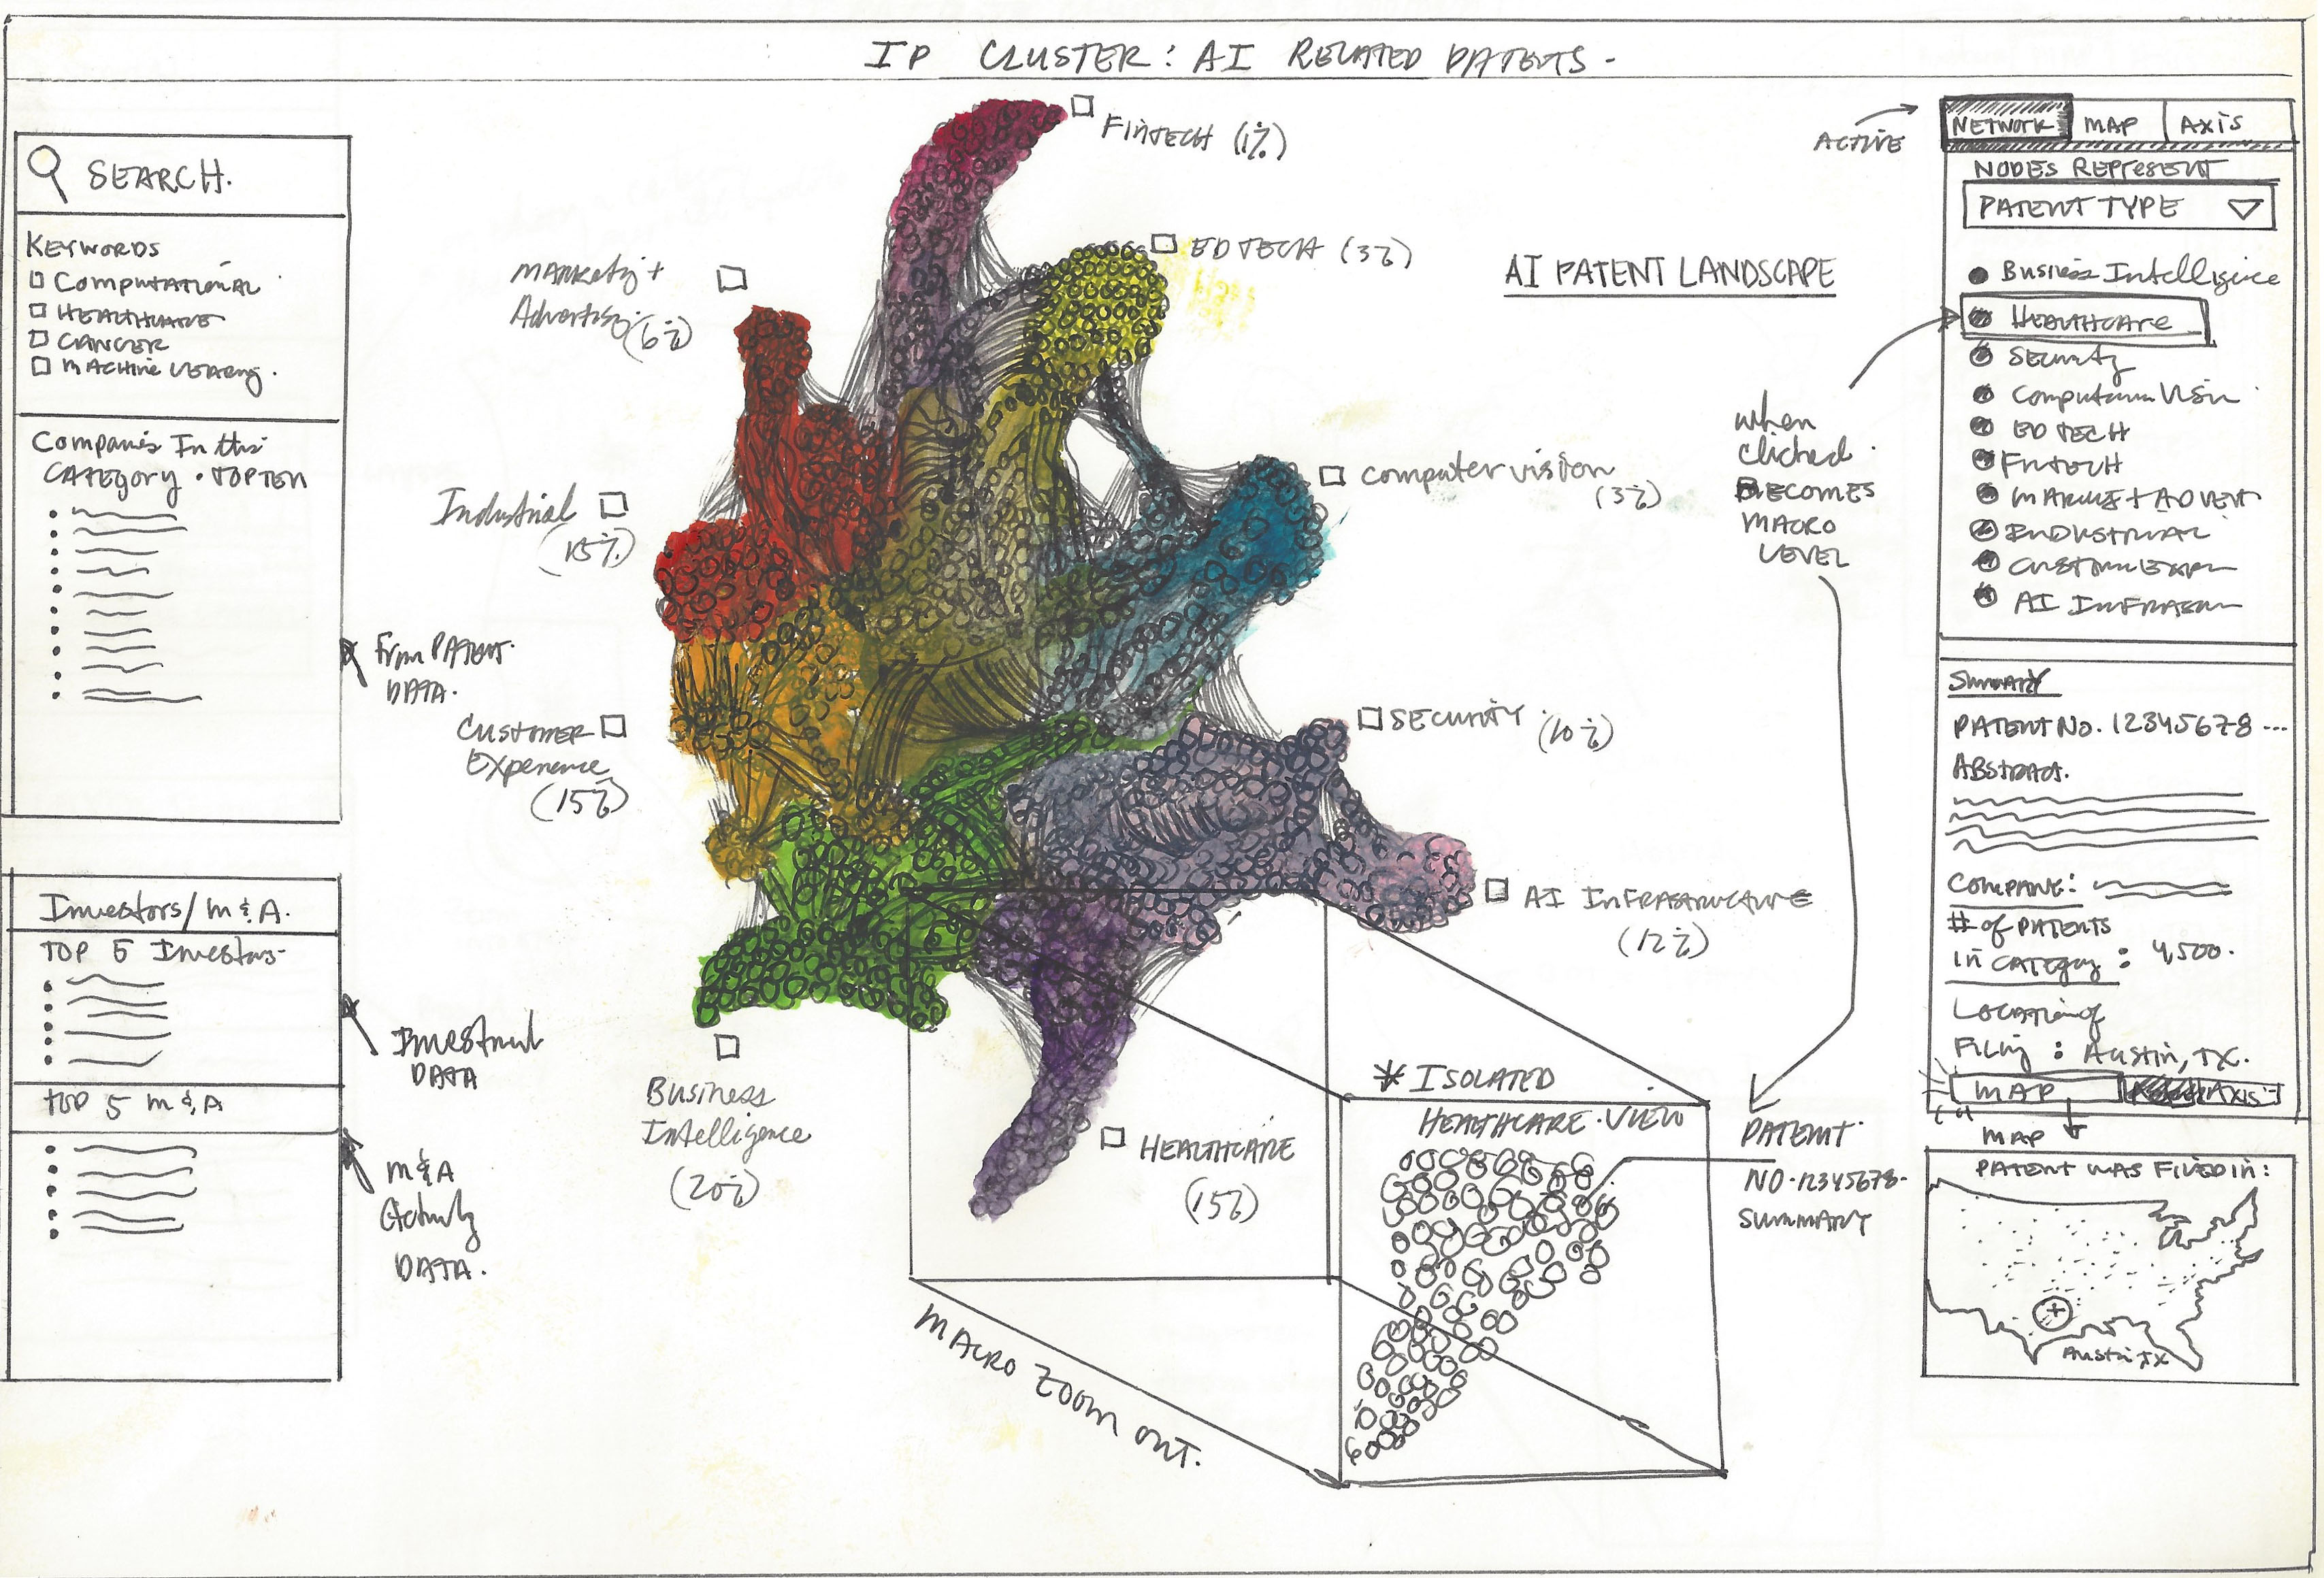 IP CLUSTER: AI RELATED PATENTS-
SEARCH.
KEYWORDS
COMPUTATIONAL
HEALTHCARE
CANCER
MACHINE LEARNG.
Companies In this
CATEgory • TOP TEN
From PATENT
DATA.
Investors/M&A.
TOP 5 Investors-
TOP 5 M&A
Investment
DATA
M&A
Activity
DATA.
FINTECH (1%)
ED TECH (3%)
MARKETING +
Advertising
(6%)
Industrial
(15%)
Computer vision
(3%)
CUSTOMER
EXPERIENCE
(15%)
SECURITY (10%)
AI INFRASTRUCTURE
(12%)
Business
Intelligence
(20%)
HEALTHCARE
(15%)
AI PATENT LANDSCAPE
MACRO ZOOM OUT.
* ISOLATED
HEALTHCARE•VIEW
PATENT
NO•12345678-
SUMMARY
when
clicked
BECOMES
MACRO
LEVEL
ACTIVE
NETWORK MAP AXIS
NODES REPRESENT
PATENT TYPE
Business Intelligence
HEALTHCARE
Security
Computer Vision
ED TECH
FINTECH
MARKE + ADVERT
INDUSTRIAL
CUSTOM EXPR
AI INFRASTR
SUMMARY
PATENT NO. 12345678---
ABSTRACT.
COMPANY:
# of PATENTS
IN CATEgory: 4,500.
LOCATION of
Filing: AUSTIN, TX.
MAP AXIS
MAP
PATENT WAS FILED IN:
Austin TX